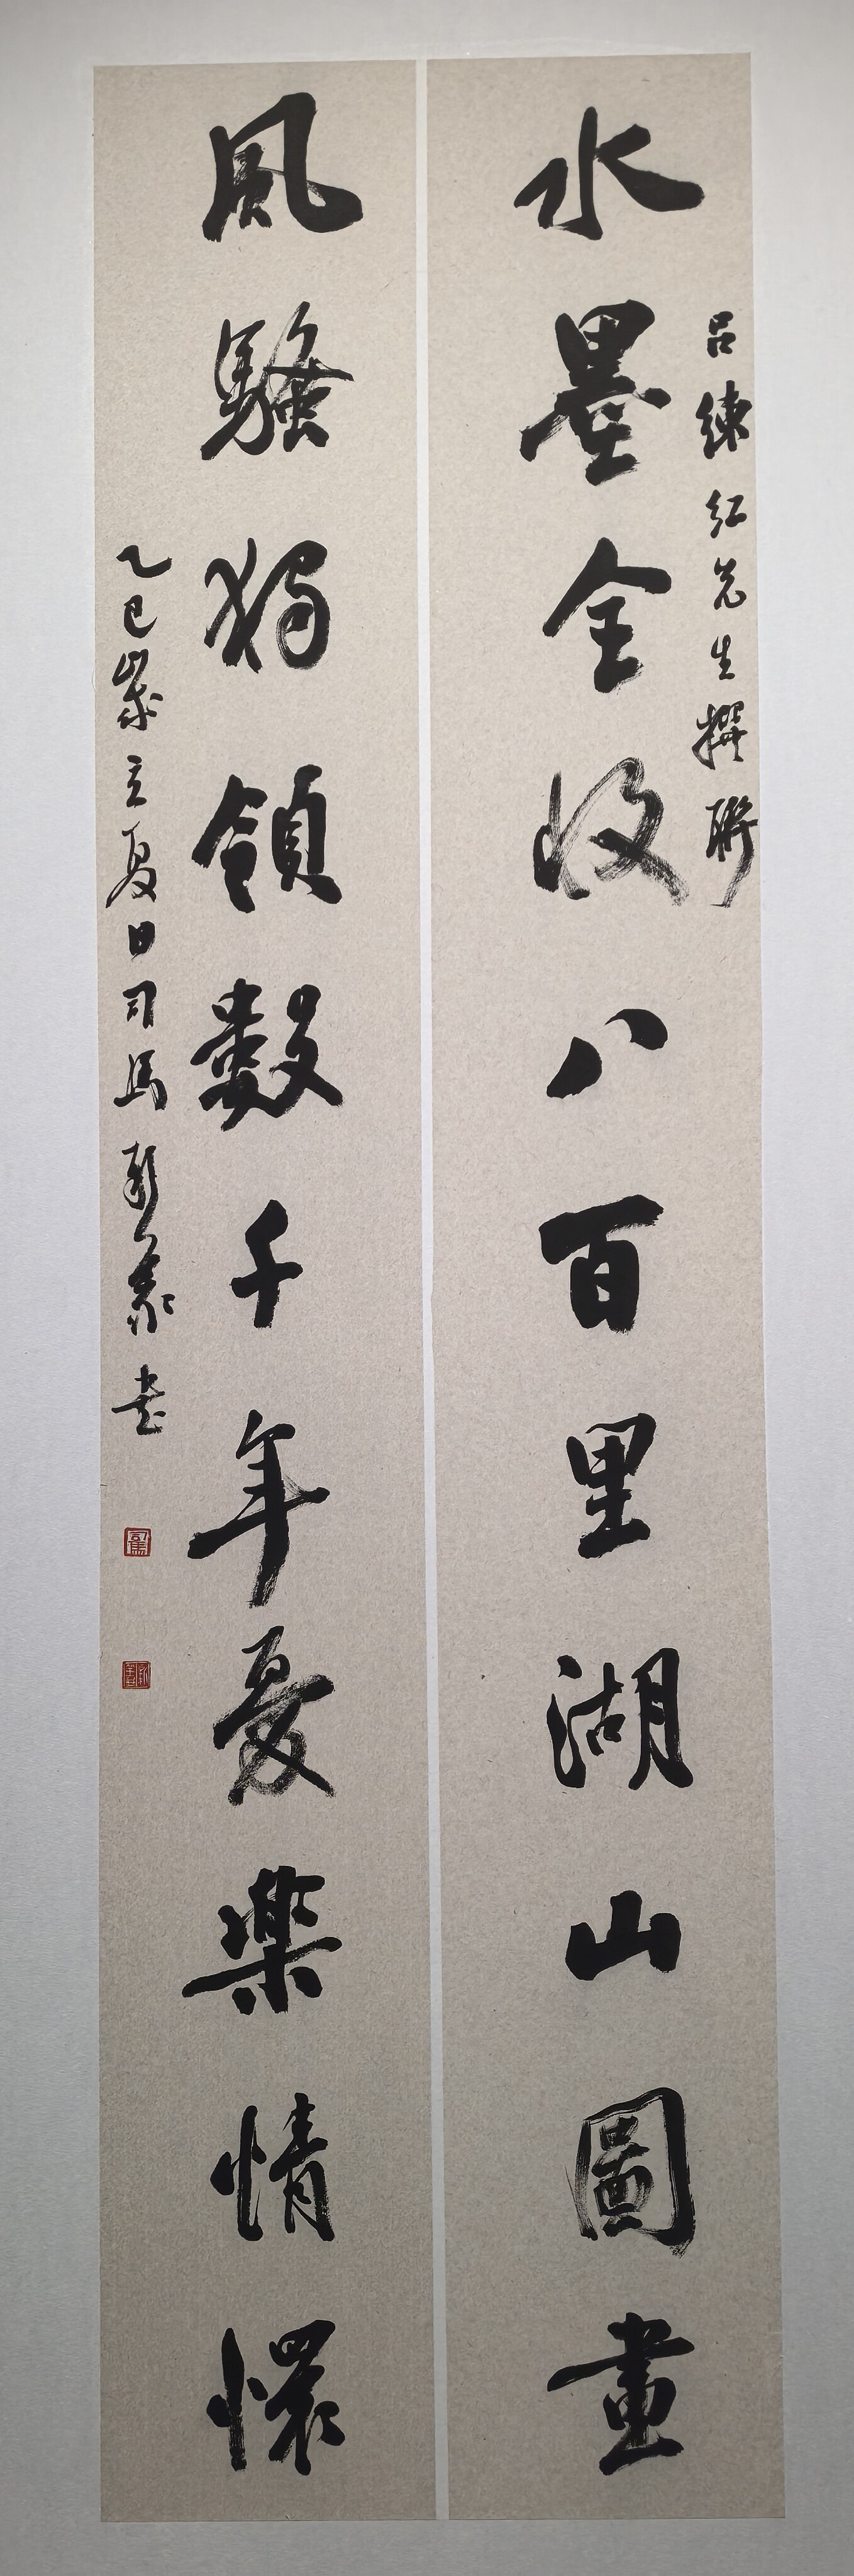 水墨全收八百里湖山圖畫
吕練紅先生撰聯
風騷獨領數千年憂樂情懷
乙巳歲立夏日司馬彭書